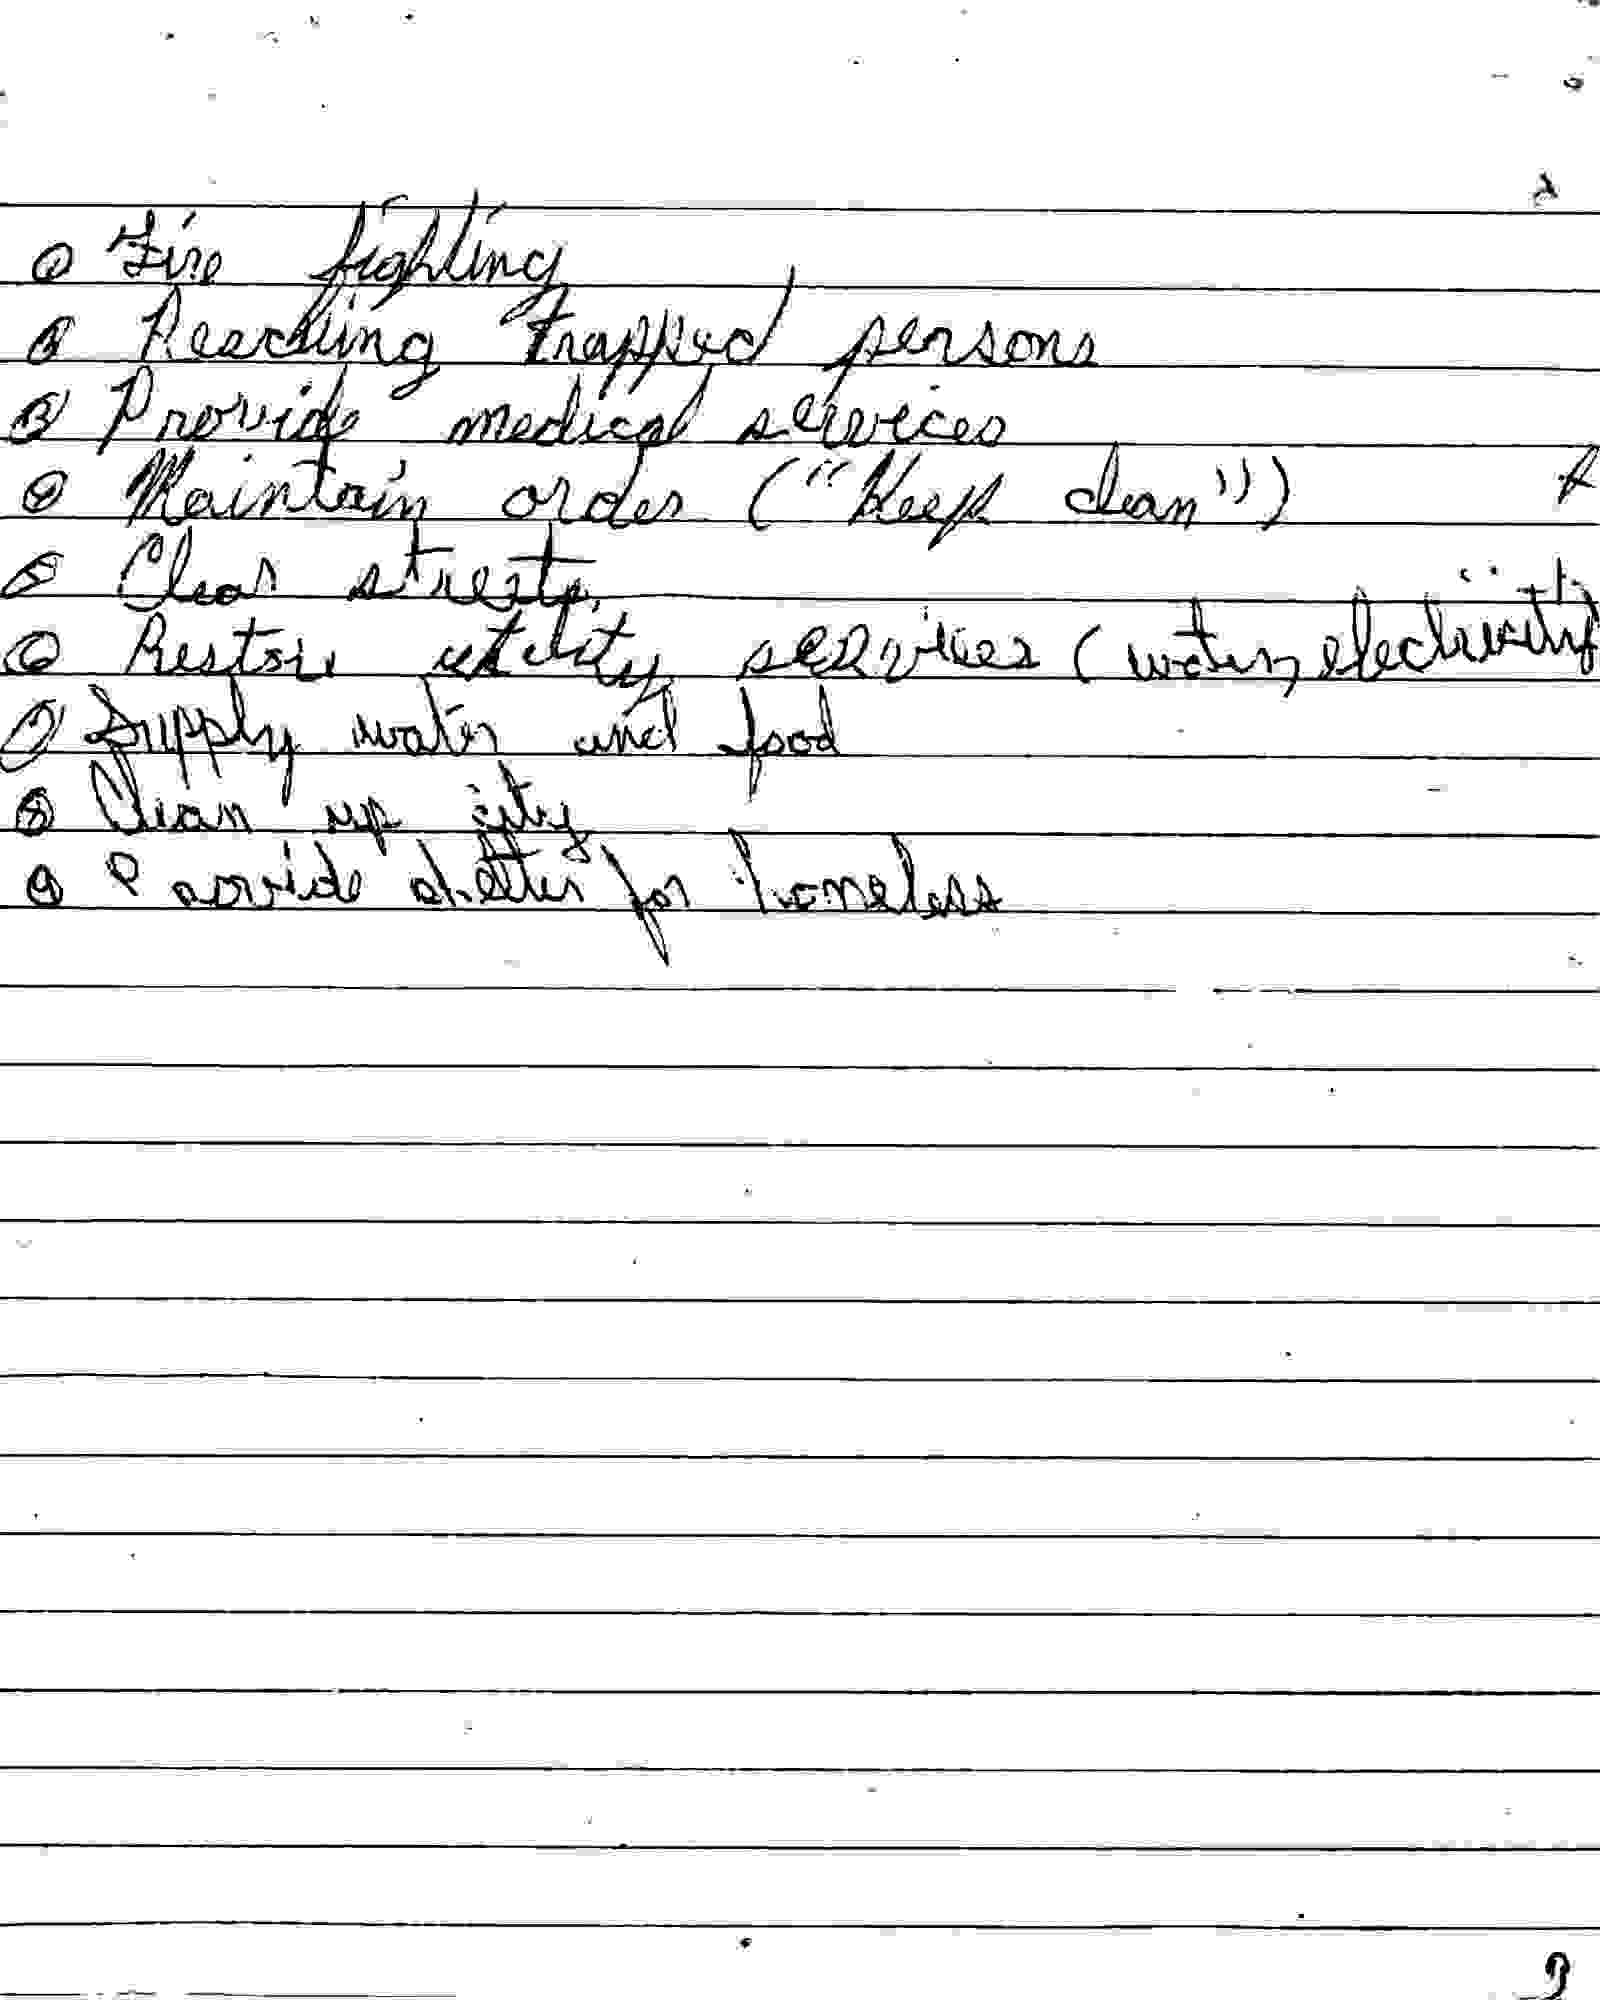 ① Fire fighting
② Reaching trapped persons
③ Provide medical services
④ Maintain order ("Keep clean")
⑤ Clear streets
⑥ Restore utility services (water, electricity
⑦ Supply water and food
⑧ Clean up city
⑨ Provide shelter for homeless